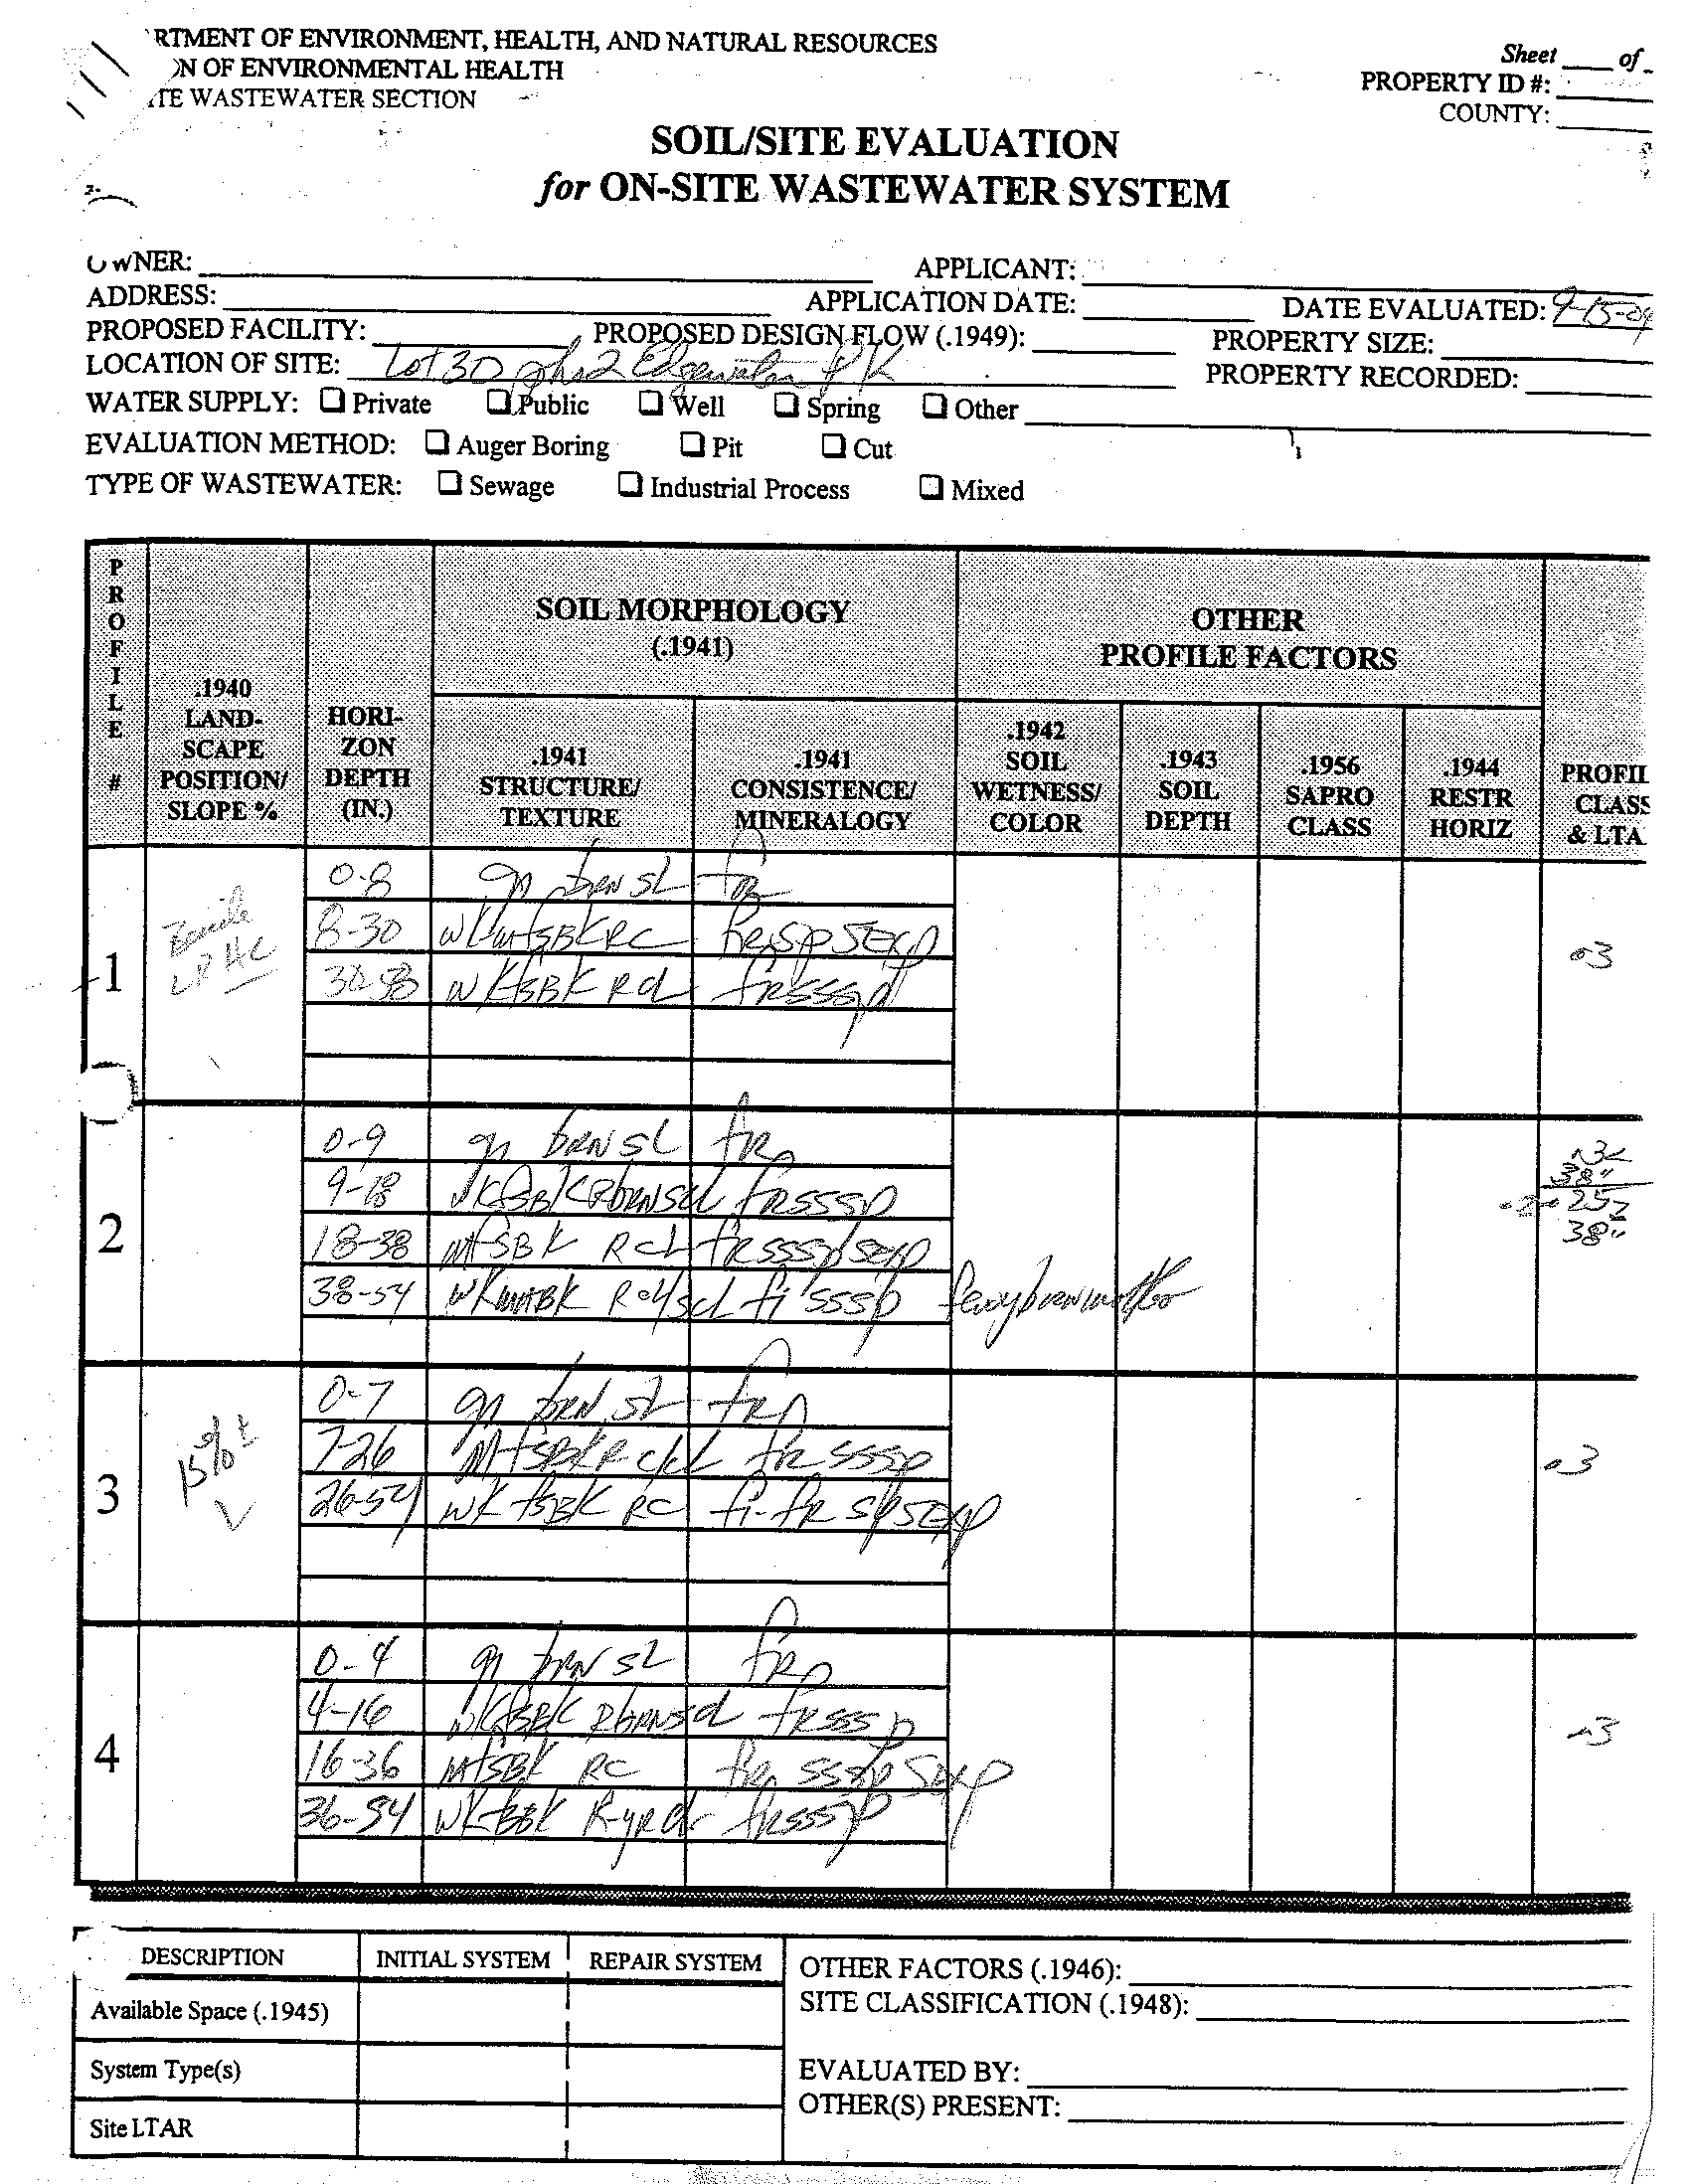 RTMENT OF ENVIRONMENT, HEALTH, AND NATURAL RESOURCES
N OF ENVIRONMENTAL HEALTH
ITE WASTEWATER SECTION
Sheet ____ of
PROPERTY ID #:
COUNTY:
SOIL/SITE EVALUATION
for ON-SITE WASTEWATER SYSTEM
OWNER: APPLICANT:
ADDRESS: APPLICATION DATE: DATE EVALUATED: 9-15-04
PROPOSED FACILITY: PROPOSED DESIGN FLOW (.1949): PROPERTY SIZE:
LOCATION OF SITE: Lot 30 phs 2 Edgewater PK PROPERTY RECORDED:
WATER SUPPLY: ❑ Private ❑ Public ❑ Well ❑ Spring ❑ Other
EVALUATION METHOD: ❑ Auger Boring ❑ Pit ❑ Cut
TYPE OF WASTEWATER: ❑ Sewage ❑ Industrial Process ❑ Mixed
PROFILE #
.1940 LAND-SCAPE POSITION/ SLOPE %
HORI-ZON DEPTH (IN.)
SOIL MORPHOLOGY (.1941)
.1941 STRUCTURE/ TEXTURE
.1941 CONSISTENCE/ MINERALOGY
OTHER PROFILE FACTORS
.1942 SOIL WETNESS/ COLOR
.1943 SOIL DEPTH
.1956 SAPRO CLASS
.1944 RESTR HORIZ
PROFIL CLASS & LTA
1
0-8 gn brn SL fr
8-30 RC fr SP SEXP
30-58 WK fSBK RCL fr SSSP
.3
2
0-9 gn brn SL fr
9-18 WK fSBK Rbrn SCL fr SSSP
18-38 MfSBK RCL fr SSSP SEXP
38-54 fi SSSP
38"
38"
3
15% ±
0-7 gn brn SL fr
7-26 MfSBK R fr SSSP
26-54 WK fSBK RC fi-fr SP SEXP
.3
4
0-4 gn brn SL fr
4-16 WK fSBK Rbrn SCL fr SSSP
16-36 MfSBK RC fr SSSP SEXP
36-54 fr SSSP
.3
DESCRIPTION INITIAL SYSTEM REPAIR SYSTEM
Available Space (.1945)
System Type(s)
Site LTAR
OTHER FACTORS (.1946):
SITE CLASSIFICATION (.1948):
EVALUATED BY:
OTHER(S) PRESENT: